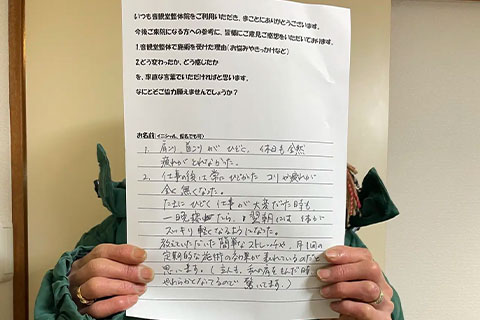 いつも音観堂整体院をご利用いただき、まことにありがとうございます。
今後ご来院になる方への参考に、皆様にご意見ご感想をいただいております。
1.音観堂整体で施術を受けた理由(お悩みやきっかけなど)
2.どう変わったか、どう感じたか
を、率直な言葉でいただければと思います。
なにとぞご協力願えませんでしょうか?
お名前(イニシャル、仮名でも可)
1. 肩こり 首こりがひどく、休日も全然
疲れがとれなかった。
2. 仕事の後は常にひどかったコリや疲れが
全く無くなった。
たまにひどく仕事が大変だった時も、
一晩寝たら、翌朝には体が
スッキリ軽くなるようになった。
教えていただいた簡単なストレッチや、月1回の
定期的な施術の効果が表れているのだと
思います。(主人も、私の肩をもんだ時
やわらかくなってるので驚いてます。)